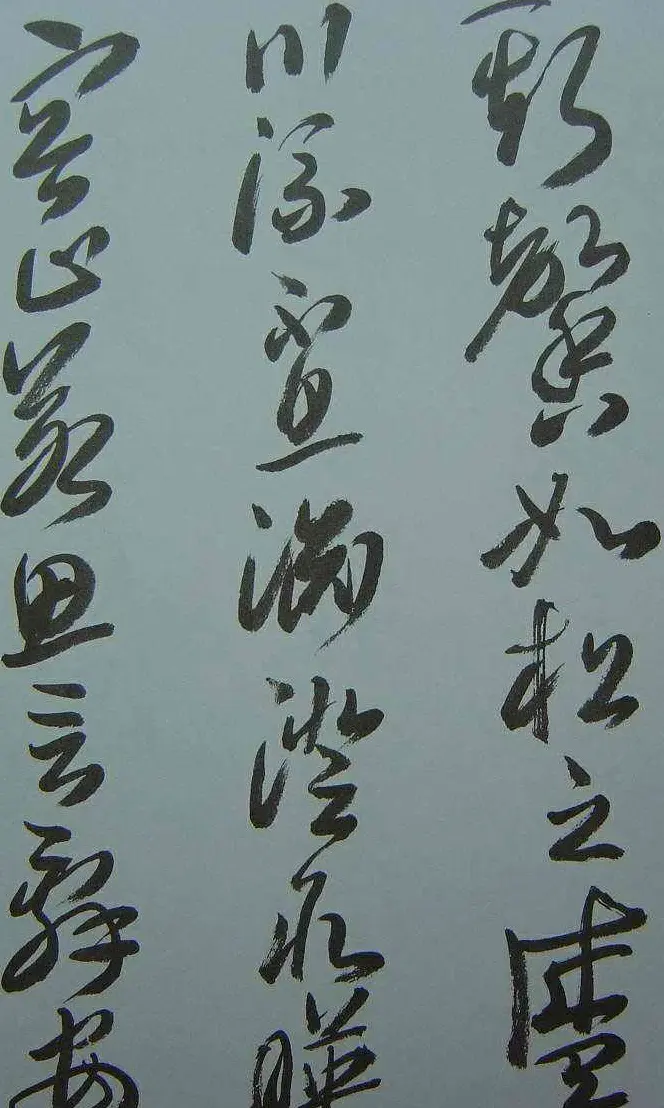 斯馨如松之盛
川流不息淵澄取暎
容止若思言辭安